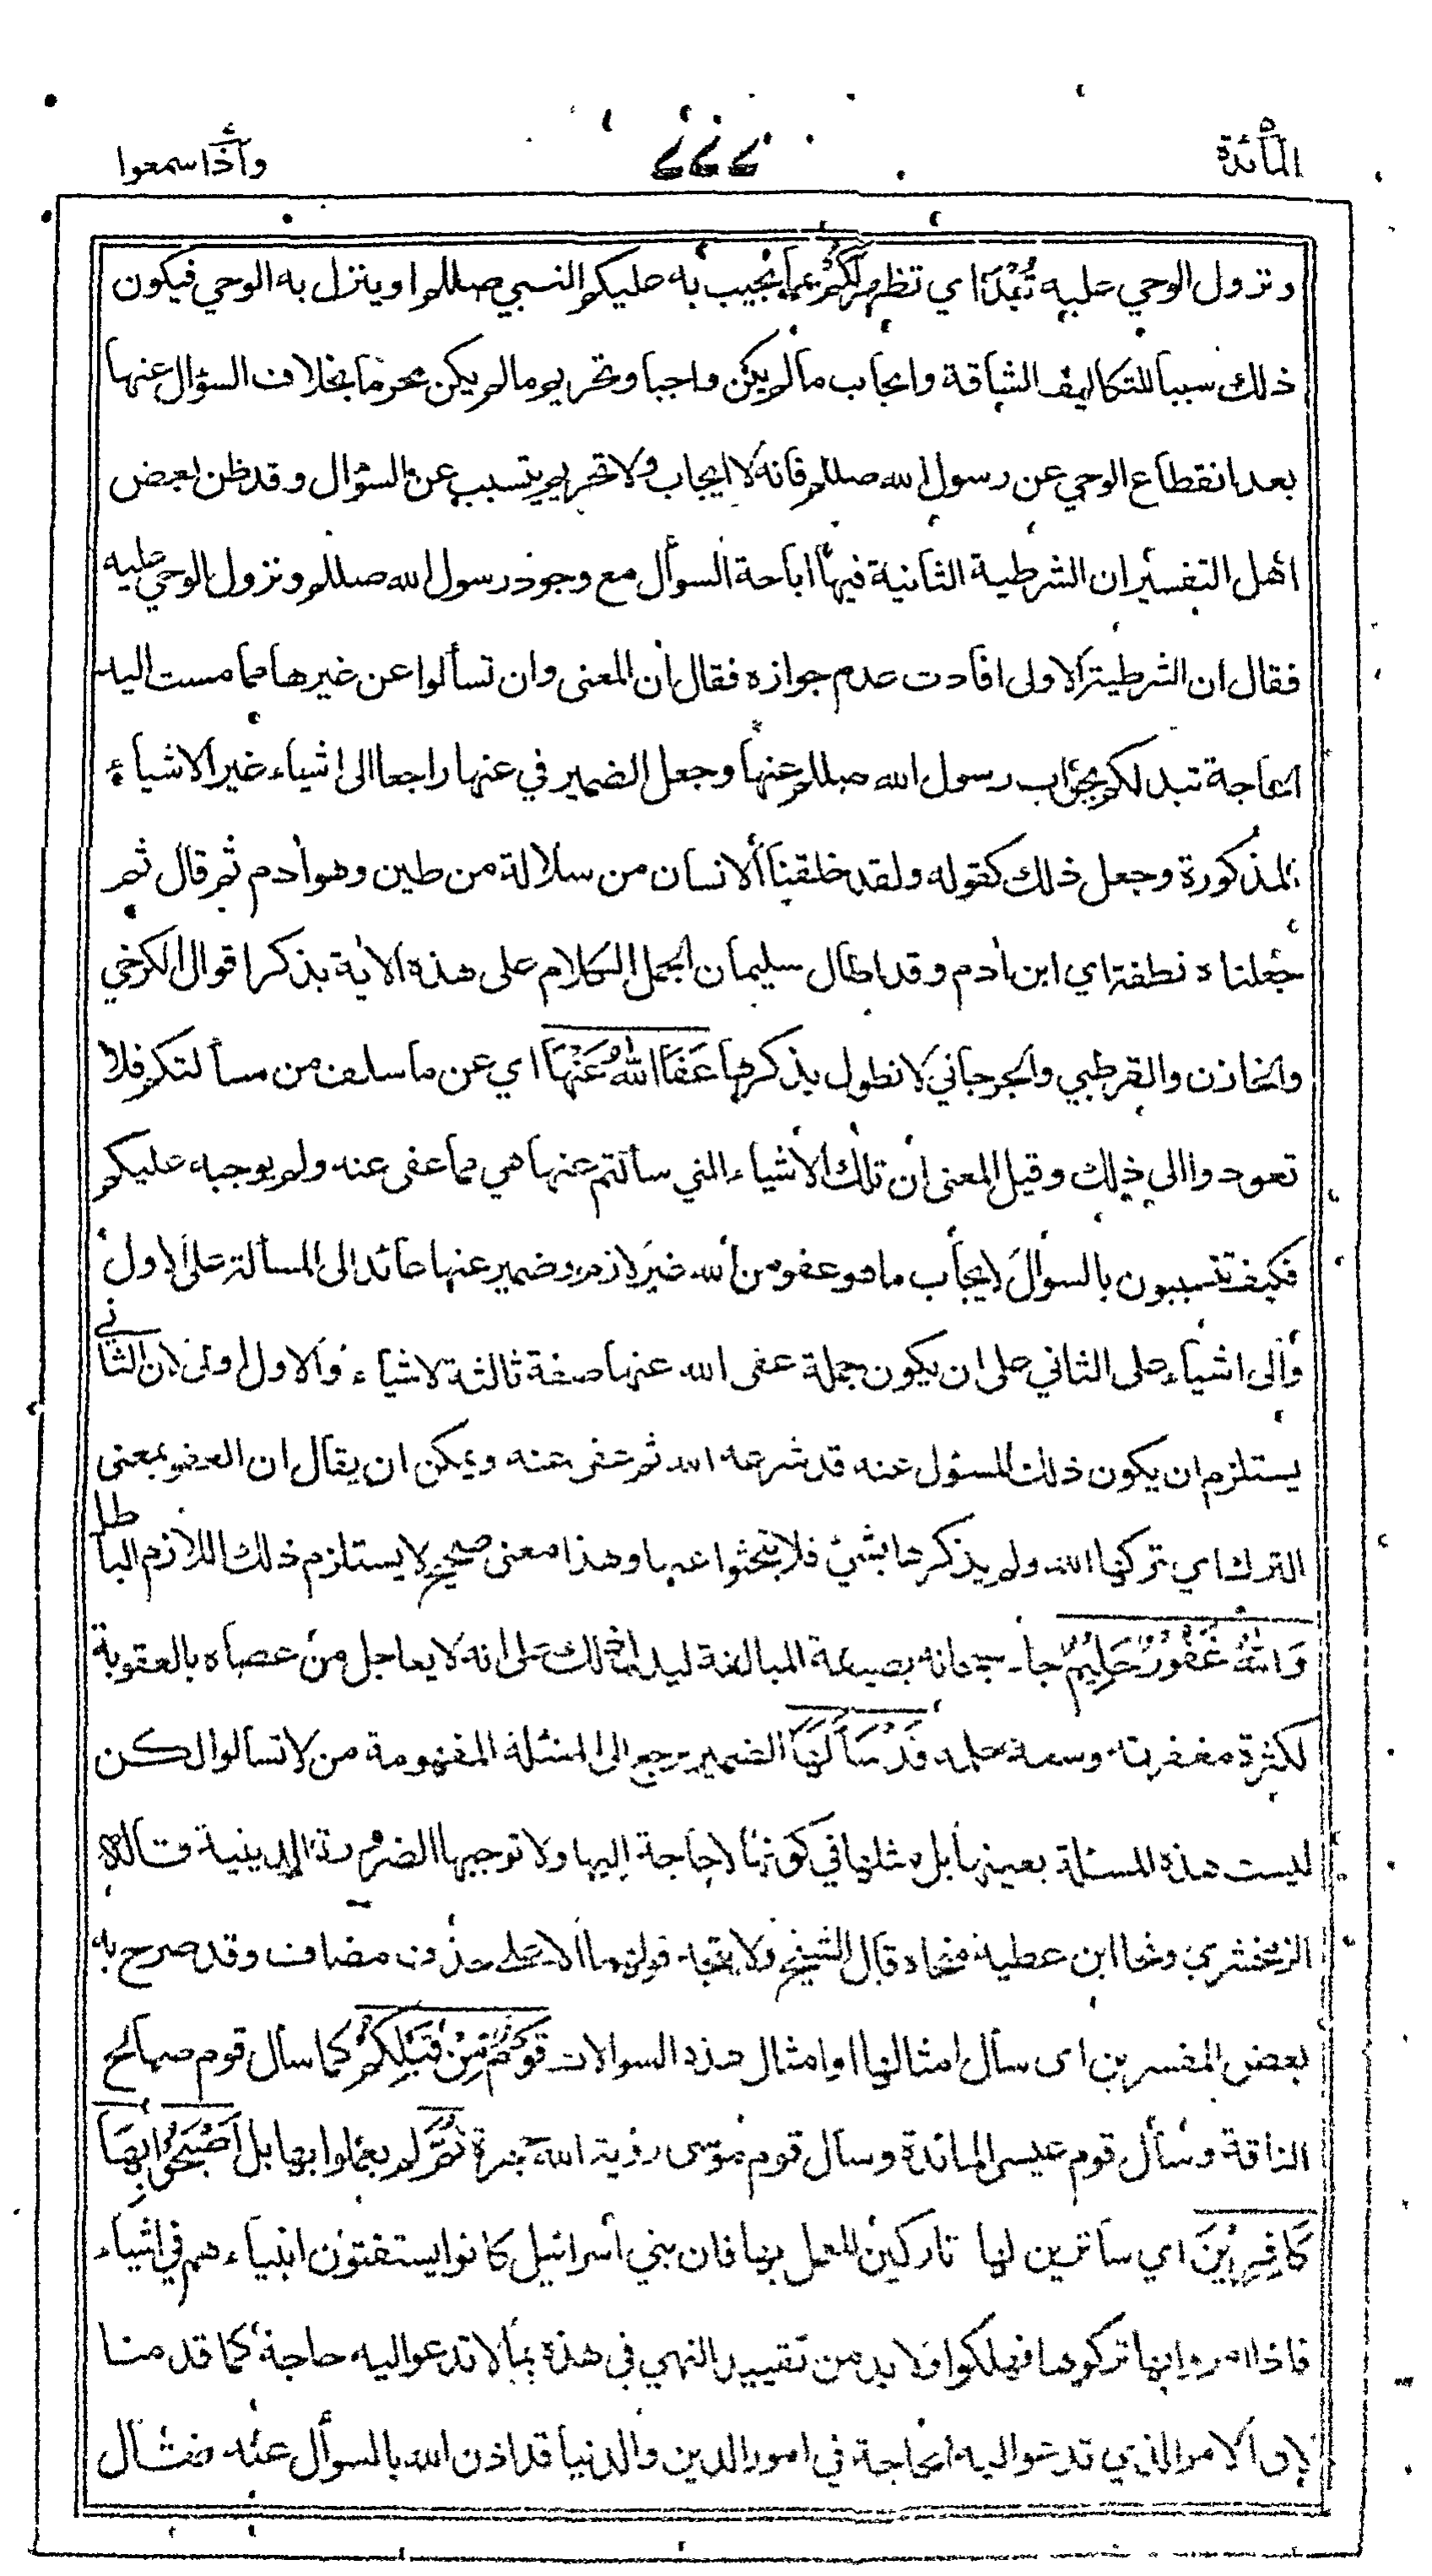 المائدة
٢٢٢
واذا سمعوا
ونزول الوحي عليه تُبْدَ اي تظهر لَكُمْ بما يجيب به عليكم النبي صللم او ينزل به الوحي فيكون
ذلك سببا للتكاليف الشاقة وايجاب مالم يكن واجبا وتحريم مالم يكن محرما بخلاف السؤال عنها
بعد انقطاع الوحي عن رسول الله صللم فانه لا ايجاب ولا تحريم يتسبب عن السؤال وقد ظن بعض
اهل التفسير ان الشرطية الثانية فيها اباحة السؤال مع وجود رسول الله صللم ونزول الوحي عليه
فقال ان الشرطية الاولى افادت عدم جوازه فقال ان المعنى وان تسألوا عن غيرها مما مست اليه
الحاجة تبد لكم بجواب رسول الله صللم عنها وجعل الضمير في عنها راجعا الى اشياء غير الاشياء
المذكورة وجعل ذلك كقوله ولقد خلقنا الانسان من سلالة من طين وهو ادم ثم قال ثم
جعلناه نطفة اي ابن ادم وقد اطال سليمان الجمل الكلام على هذه الاية بذكر اقوال الكرخي
والخازن والقرطبي والجرجاني لا نطول بذكرها عَفَا اللّٰهُ عَنْهَا اي عن ما سلف من مسألتكم فلا
تعودوا الى ذلك وقيل المعنى ان تلك الاشياء التي سألتم عنها هي مما عفى عنه ولم يوجبه عليكم
فكيف تتسببون بالسؤال لايجاب ما هو عفو من الله غير لازم وضمير عنها عائد الى المسألة على الاول
والى اشياء على الثاني على ان يكون جملة عفى الله عنها صفة ثالثة لاشياء والاول اولى لان الثاني
يستلزم ان يكون ذلك المسؤل عنه قد شرعه الله ثم عفى عنه ويمكن ان يقال ان العفو بمعنى
الترك اي تركها الله ولم يذكرها بشئ فلا تبحثوا عنها وهذا معنى صحيح لا يستلزم ذلك اللازم الباطل
وَاللّٰهُ غَفُوْرٌ حَلِيْمٌ جاء سبحانه بصيغة المبالغة ليدل بذلك على انه لا يعاجل من عصاه بالعقوبة
لكثرة مغفرته وسعة حلمه قَدْ سَأَلَهَا الضمير يرجع الى المسئلة المفهومة من لا تسألوا لكن
ليست هذه المسئلة بعينها بل مثلها في كونها لا حاجة اليها ولا توجبها الضرورة الدينية قاله
الزمخشري ونحا ابن عطية منحاه قال الشيخ ولا يتجه قولهما الا على حذف مضاف وقد صرح به
بعض المفسرين اى سأل امثالها او امثال هذه السوالات قَوْمٌ مِّنْ قَبْلِكُمْ كما سأل قوم صالح
الناقة وسأل قوم عيسى المائدة وسأل قوم موسى رؤية الله جهرة ثُمَّ لم يعملوا بها بل اَصْبَحُوْا بِهَا
كَافِرِيْنَ اي ساترين لها تاركين للعمل بها فان بني اسرائيل كانوا يستفتون انبياءهم في اشياء
فاذا امروا بها تركوها فهلكوا ولا بد من تقييد النهي في هذه بما لا تدعو اليه حاجة كما قدمنا
لان الامر الذي تدعو اليه الحاجة في امور الدين والدنيا قد اذن الله بالسوال عنه فقال